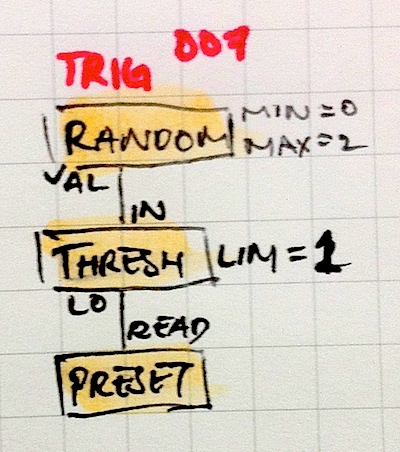 007
TRIG
RANDOM
MIN=0
MAX=2
VAL
IN
THRESH
LIM=1
LO
READ
PRESET